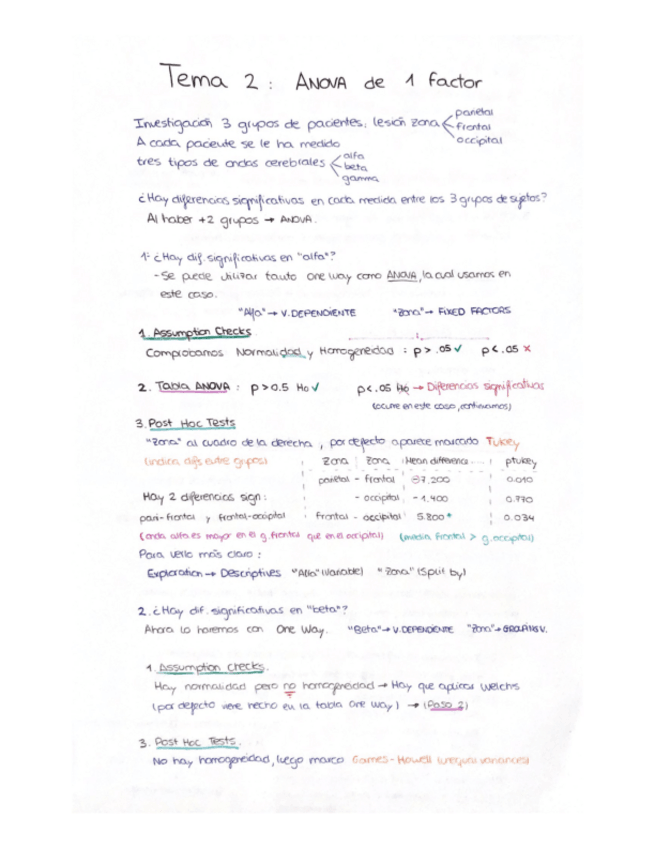 Tema 2: ANOVA de 1 factor
Investigación 3 grupos de pacientes, lesión zona parietal
frontal
occipital
A cada paciente se le ha medido
tres tipos de ondas cerebrales alfa
beta
gamma
¿Hay diferencias significativas en cada medida entre los 3 grupos de sujetos?
Al haber +2 grupos → ANOVA.
1: ¿Hay dif. significativas en "alfa"?
- Se puede utilizar tanto one way como ANOVA, la cual usamos en
este caso.
"Alfa" → V. DEPENDIENTE "Zona" → FIXED FACTORS
1. Assumption Checks
Comprobamos Normalidad y Homogeneidad : p > .05 ✓ p < .05 ×
2. Tabla ANOVA : p > 0.5 Ho ✓ p < .05 Ho → Diferencias significativas
(ocurre en este caso, continuamos)
3. Post Hoc Tests
"Zona" al cuadro de la derecha, por defecto aparece marcado Tukey
(indica difs entre grupos) Zona Zona Mean difference ptukey
parietal - frontal -7.200 0.010
Hay 2 diferencias sign: - occipital - 1.400 0.770
pari-frontal y frontal-occipital frontal - occipital 5.800* 0.034
(onda alfa es mayor en el g. frontal que en el occipital) (media frontal > g. occipital)
Para verlo más claro :
Exploration → Descriptives "Alfa" (Variable) "Zona" (Split by)
2. ¿Hay dif. significativas en "beta"?
Ahora lo haremos con One Way. "Beta" → V. DEPENDIENTE "Zona" → GROUPING V.
1. Assumption checks.
Hay normalidad pero no homogeneidad → Hay que aplicar Welchs
(por defecto viene hecho en la tabla One Way) → (Paso 2)
3. Post Hoc Tests.
No hay homogeneidad, luego marco Games-Howell (unequal variances)